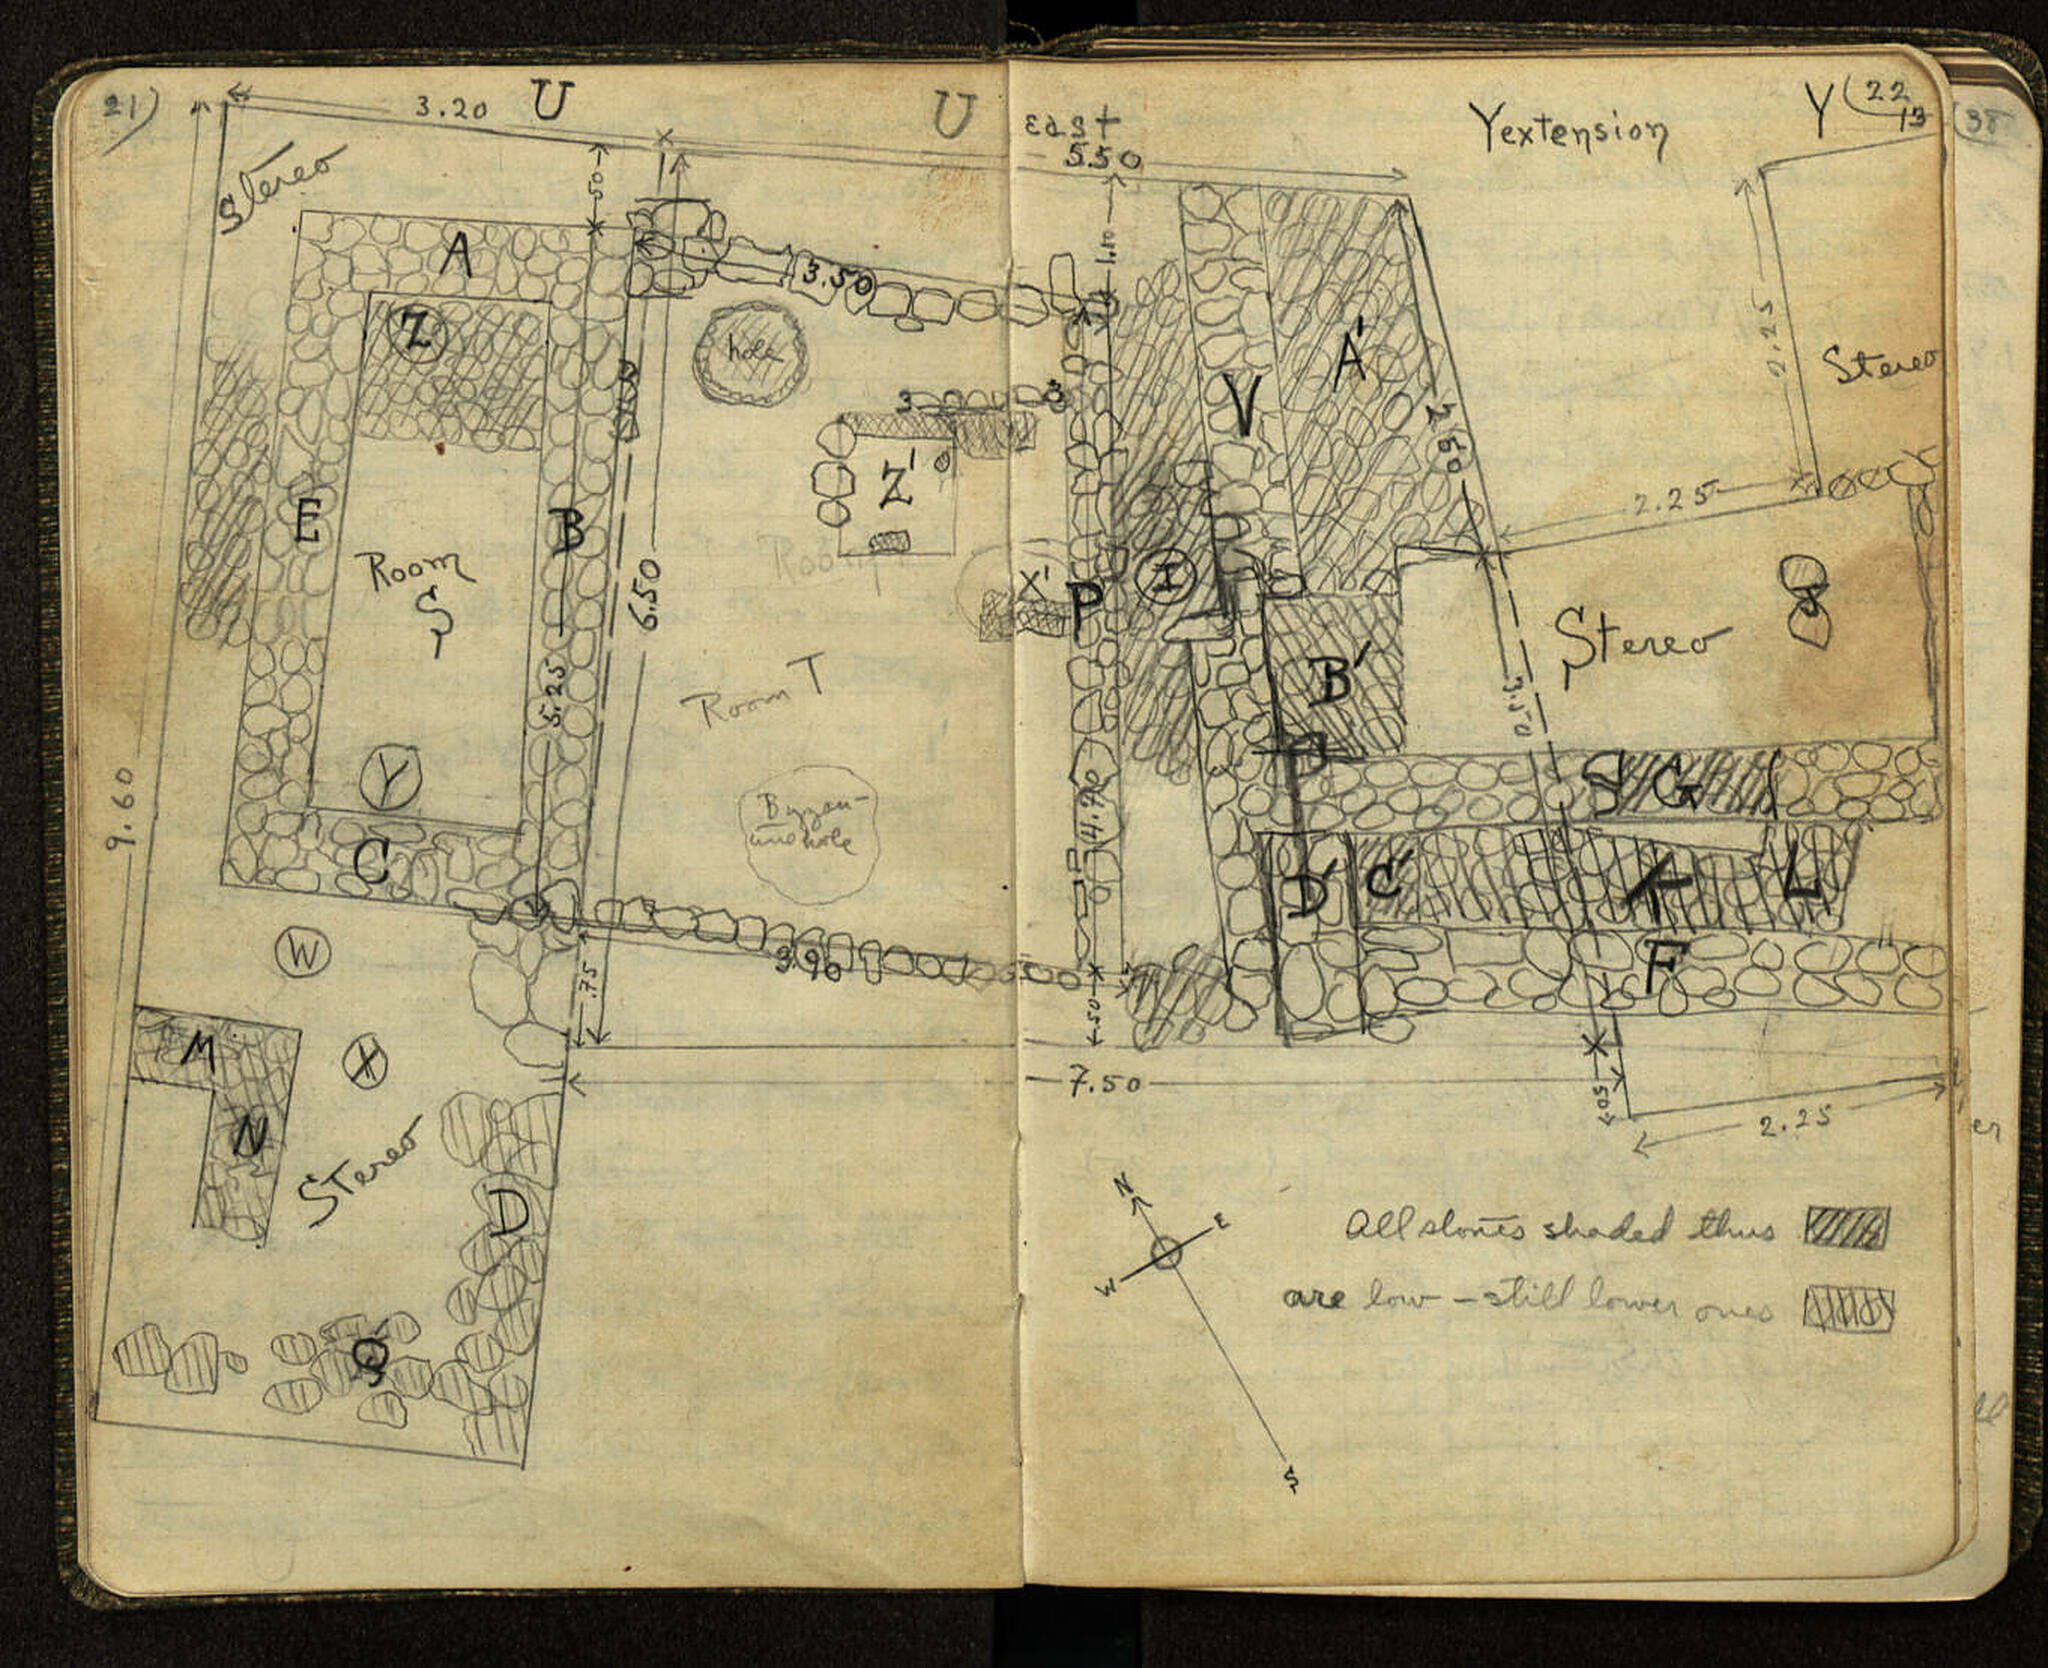 21)
3.20
U
U
East
5.50
Y extension
Y
(22
13
(38
Stereo
.50
A
3.50
1.10
Z
hole
V
A'
2.60
2.25
Stereo
3
3
Z'
2.25
E
B
Room
S
6.50
X'
P
I
8
Stereo
B'
Room T
5.25
Y
Byzan-
tine hole
4.70
G
9.60
C
D'
C'
L
F
W
3.90
.75
.50
M
X
N
7.50
.50
2.25
Stereo
D
Q
N
E
W
S
All stones shaded thus
are low - still lower ones